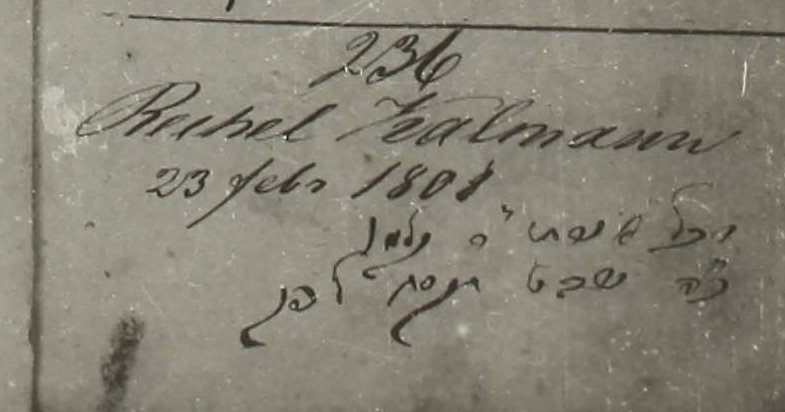 236
Rechel Kalmann
23 febr 1808
רכל אשת ר" קלמן
כ"ה שבט תקסח לפק